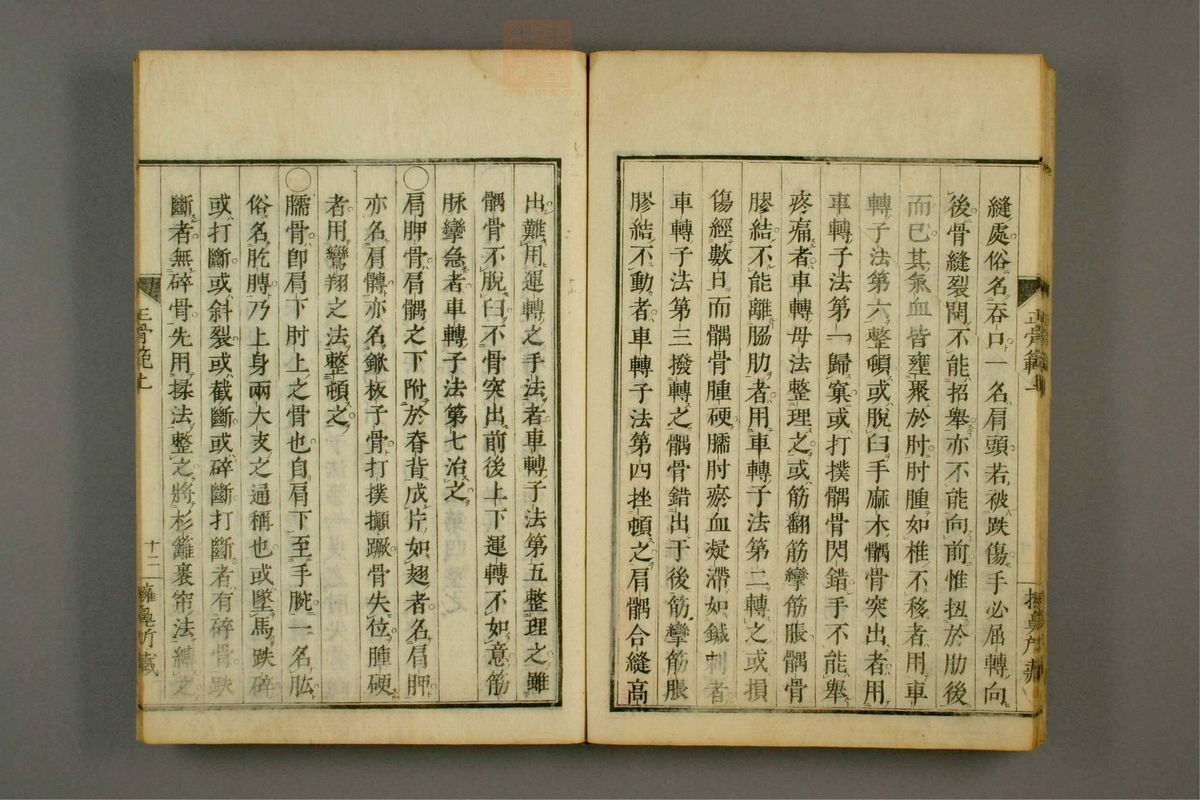 縫處俗名吞口一名肩頭若被跌傷手必屈轉向
後骨縫裂開不能招舉亦不能向前惟扭於肋後
而已其氣血皆壅聚於肘肘腫如椎不移者用車
轉子法第六整頓或脫臼手麻木髃骨突出者用
車轉子法第一歸窠或打撲髃骨閃錯手不能舉
疼痛者車轉母法整理之或筋翻筋攣筋脹髃骨
膠結不能離脇肋者用車轉子法第二轉之或損
傷經數日而髃骨腫硬臑肘瘀血凝滯如鍼刺者
車轉子法第三撥轉之髃骨錯出于後筋攣筋脹
膠結不動者車轉子法第四挫頓之肩髃合縫高
出難用運轉之手法者車轉子法第五整理之雖
髃骨不脫臼不骨突出前後上下運轉不如意筋
脉攣急者車轉子法第七治之
○肩胛骨肩髃之下附於脊背成片如翅者名肩胛
亦名肩髆亦名鍁板子骨打撲攧蹶骨失位腫硬
者用鸞翔之法整頓之
○臑骨卽肩下肘上之骨也自肩下至手腕一名肱
俗名肐膊乃上身兩大支之通稱也或墜馬跌碎
或打斷或斜裂或截斷或碎斷打斷者有碎骨跌
斷者無碎骨先用揉法整之將杉籬裹帘法縛之
正骨範上
十二